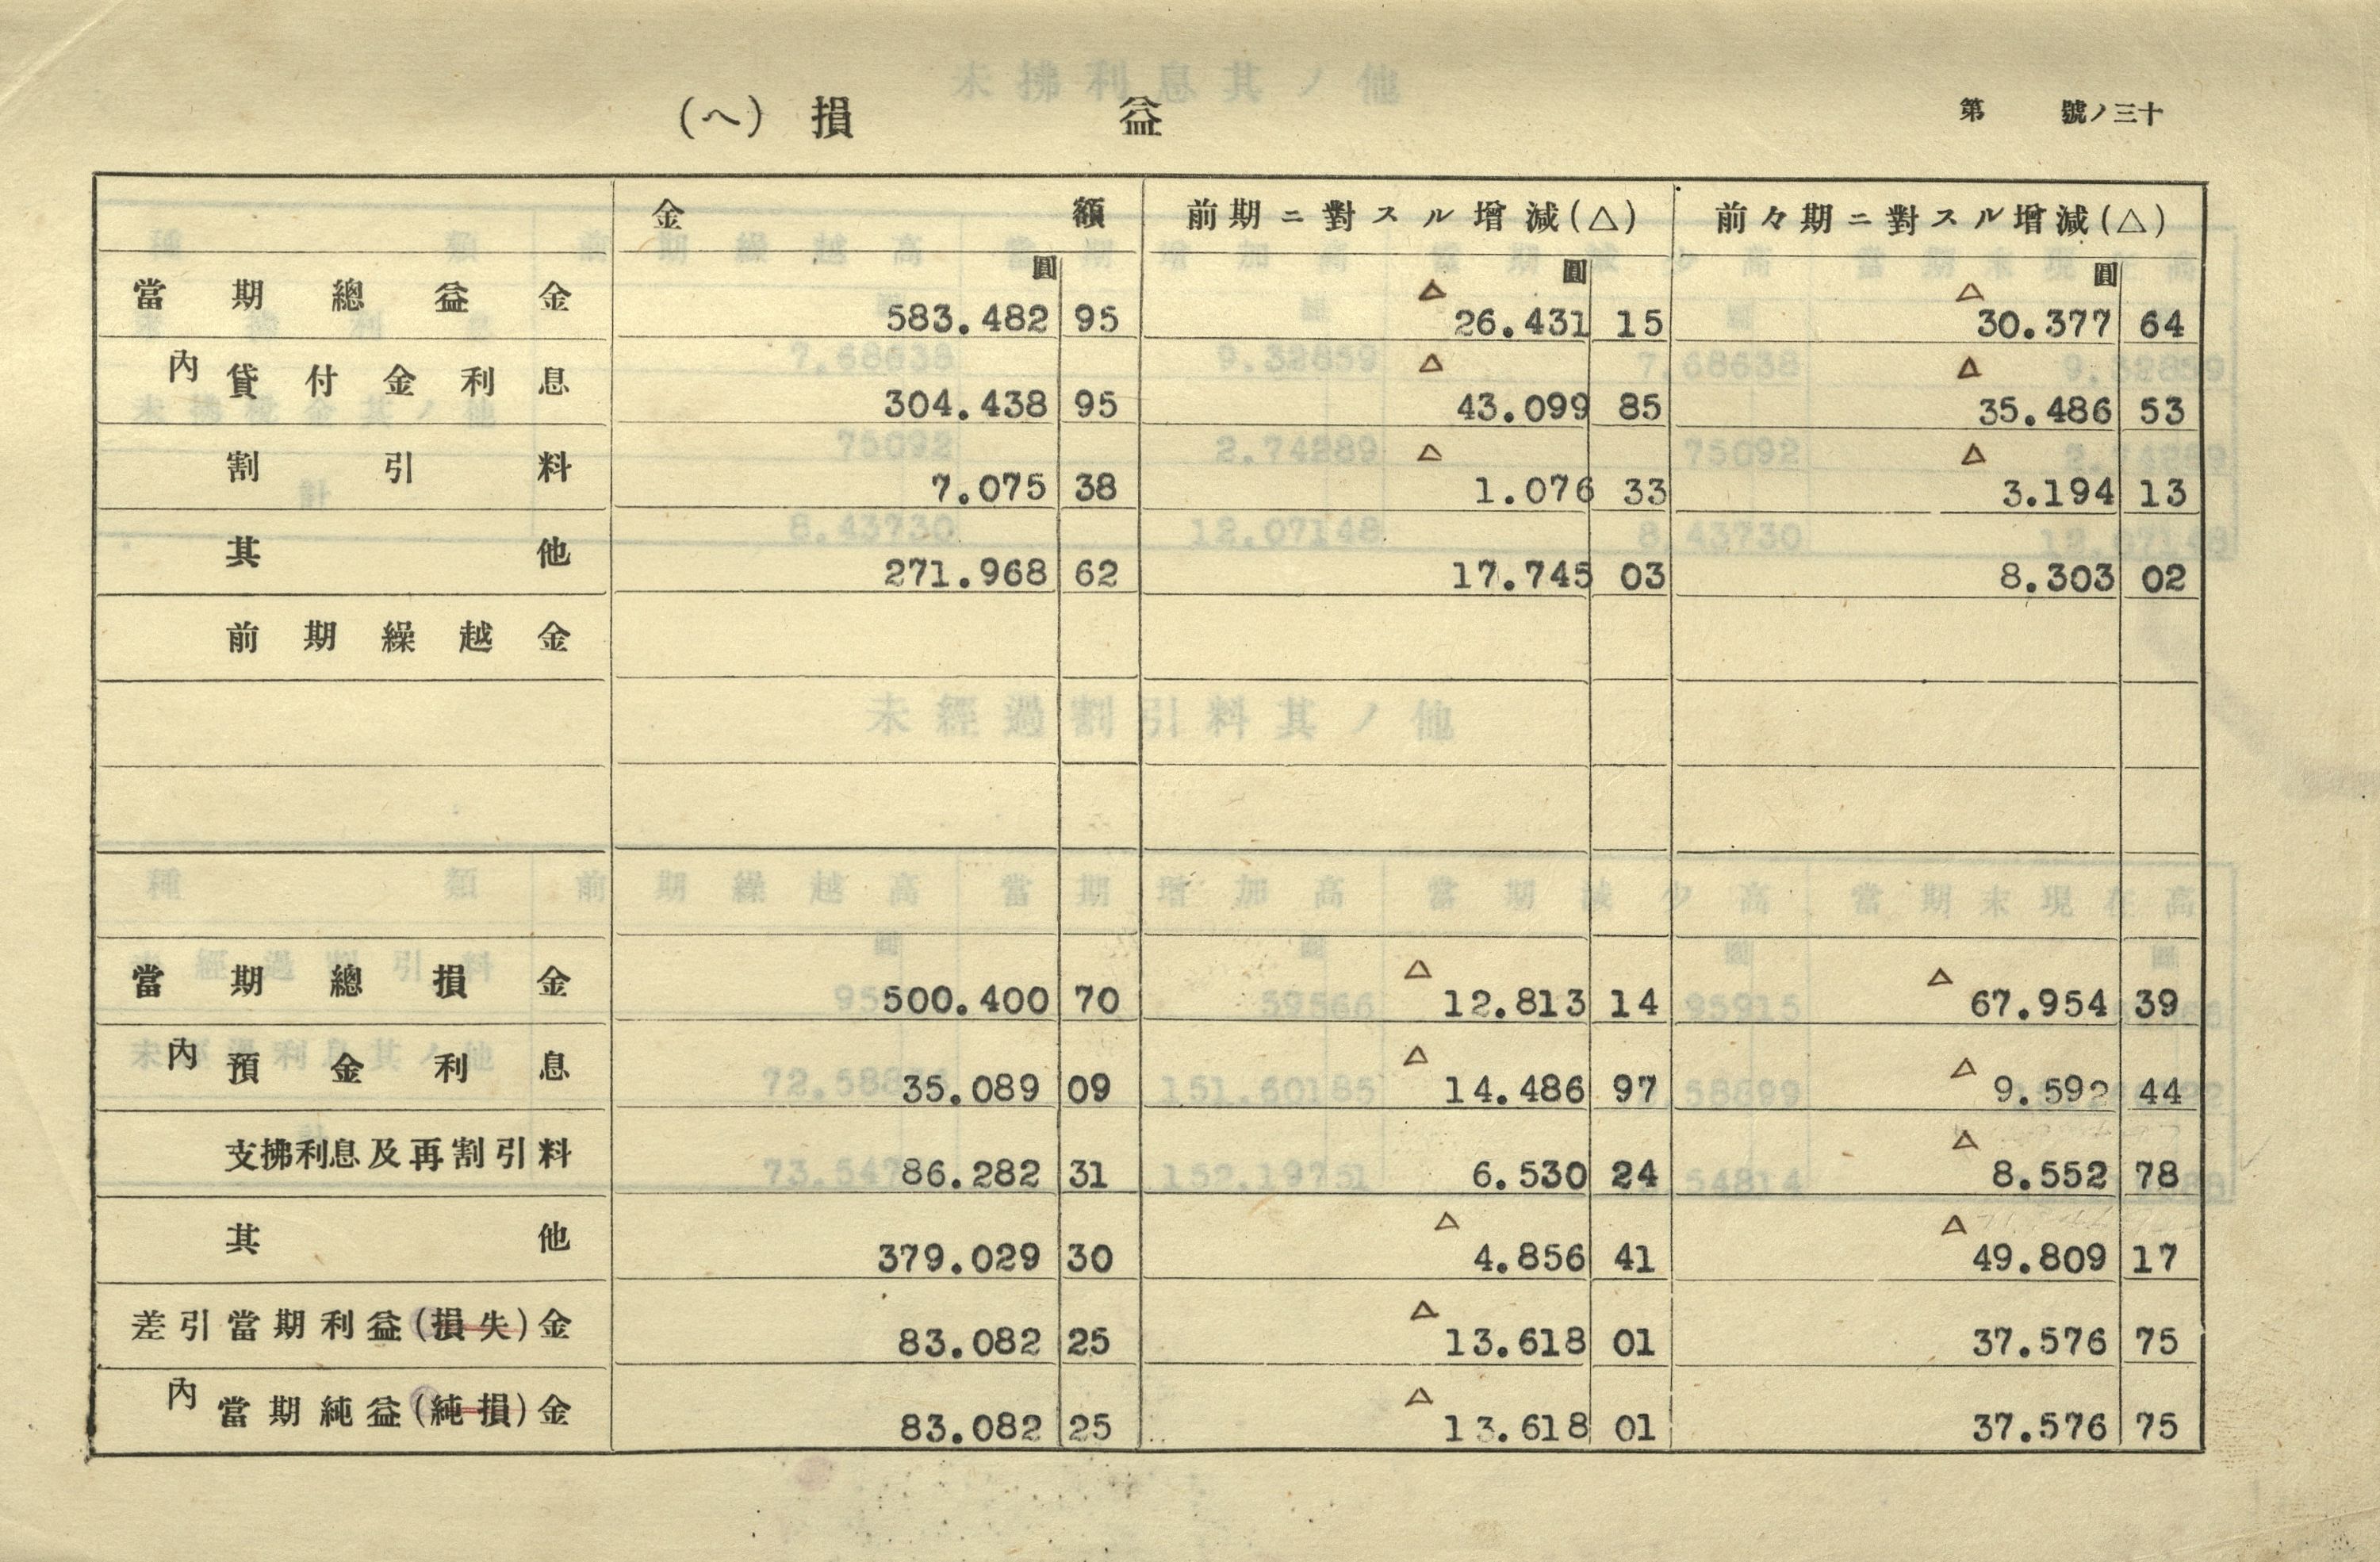 (ヘ) 損益
第 號ノ三十
金額 前期ニ對スル增減(△) 前々期ニ對スル增減(△)
圓 圓 圓
當期總益金 583.482 95 △ 26.431 15 △ 30.377 64
內 貸付金利息 304.438 95 △ 43.099 85 △ 35.486 53
割引料 7.075 38 △ 1.076 33 △ 3.194 13
其他 271.968 62 17.745 03 8.303 02
前期繰越金
當期總損金 500.400 70 △ 12.813 14 △ 67.954 39
內 預金利息 35.089 09 △ 14.486 97 △ 9.592 44
支拂利息及再割引料 86.282 31 6.530 24 △ 8.552 78
其他 379.029 30 △ 4.856 41 △ 49.809 17
差引當期利益(損失)金 83.082 25 △ 13.618 01 37.576 75
內 當期純益(純損)金 83.082 25 △ 13.618 01 37.576 75